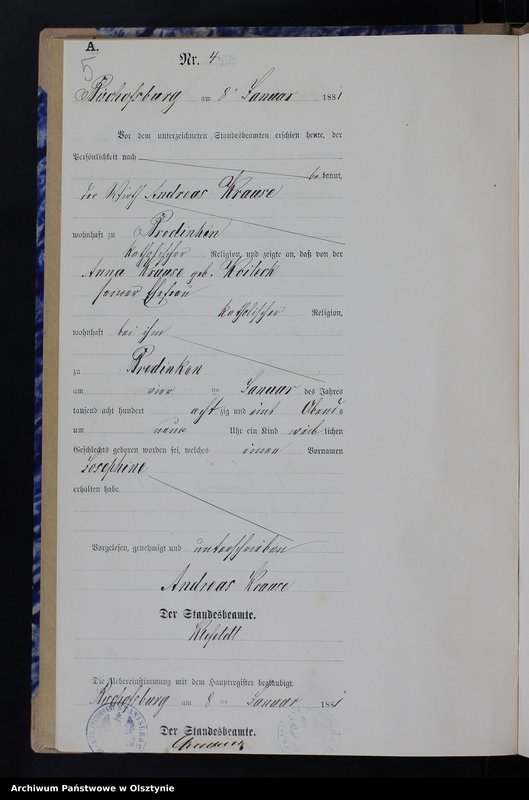 A.
5
Nr. 4
Bischofsburg am 8ten Januar 1881
Vor dem unterzeichneten Standesbeamten erschien heute, der
Persönlichkeit nach
bekannt,
der Wirth Andreas Krause
wohnhaft zu Bredinken
katholischer Religion, und zeigte an, daß von der
Anna Krause geb.
seiner Ehefrau
katholischer Religion,
wohnhaft bei ihm
zu Bredinken
am vier ten Januar des Jahres
tausend acht hundert acht zig und eins Abends
um neun Uhr ein Kind weib lichen
Geschlechts geboren worden sei, welches einen Vornamen
Josephine
erhalten habe
Vorgelesen, genehmigt und unterschrieben
Andreas Krause
Der Standesbeamte.
Die Uebereinstimmung mit dem Hauptregister beglaubigt.
Bischofsburg am 8 ten Januar 1881
Der Standesbeamte.
Archiwum Państwowe w Olsztynie